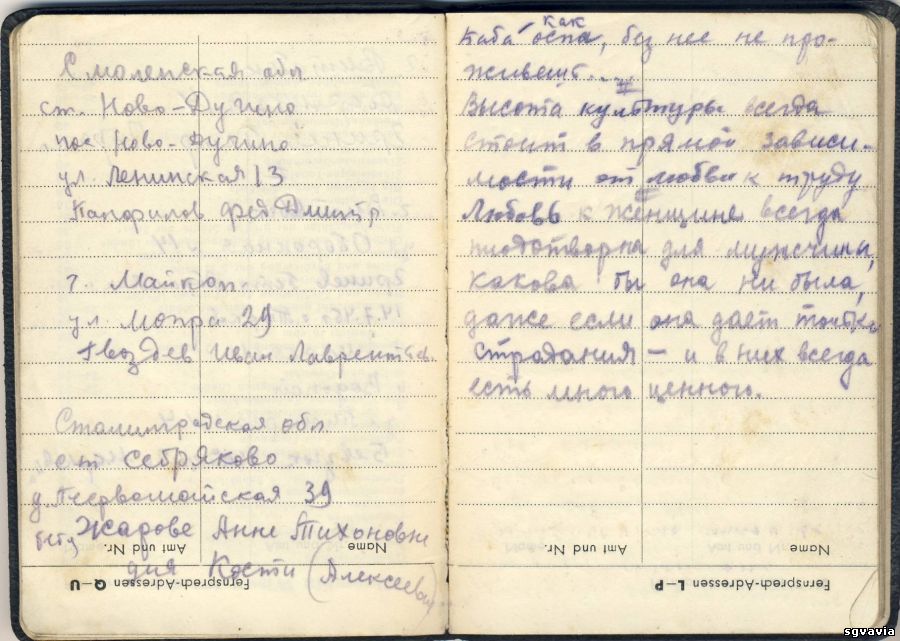 Смоленская обл
ст. Ново-Дугино
пос Ново-Дугино
ул. Ленинская 13
Панфилов Фед Дмитр
г. Майкоп
ул. Мопра 29
Гвоздев Иван Лаврентьев.
Сталинградская обл
ст Себряково
ул. Первомайская 39
Жарове Анне Тихоновне
для Кости (Алексеева)
Name
Amt und Nr.
Fernsprech-Adressen Q–U
как
оспа, без нее не про-
живешь....
Высота культуры всегда
стоит в прямой зависи-
мости от любви к труду
Любовь к женщине всегда
плодотворна для мужчины,
какова бы она ни была,
даже если она дает только
страдания – и в них всегда
есть много ценного.
Name
Amt und Nr.
Fernsprech-Adressen L–P
sgvavia